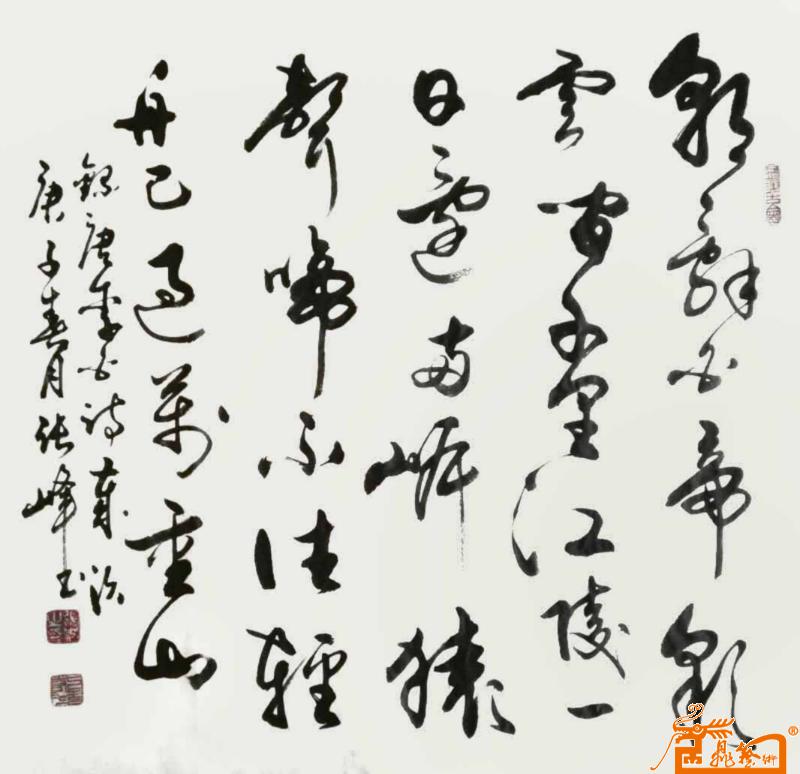 朝辭白帝彩
雲間千里江陵一
日還兩岸猿
聲啼不住輕
舟已過萬重山
錄唐李白詩
庚子春月張峰書
藝術